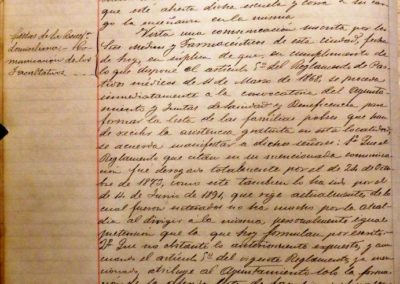 que esté abierta dicha escuela y corra á su car-
go la enseñanza en la misma
Vista una comunicacion suscrita por los
Sres Medicos y Farmaceuticos de esta ciudad, fecha
de hoy, en suplica de que en cumplimiento de
lo que dispone el articulo 5º del Reglamento de Par-
tidos médicos de 11 de Marzo de 1868, se proceda
inmediatamente á la convocatoria del Ayunta-
miento y Juntas de Sanidad y Beneficencia para
formar la lista de las familias pobres que han
de recibir la asistencia gratuita en esta localidad,
se acuerda manifestar á dichos señores: 1º Que el
Reglamento que citan en su mencionada comunica-
cion fue derogado totalmente por el de 24 de Octu-
bre de 1873, como este tambien lo ha sido por el
de 14 de Junio de 1891, que rige actualmente, de lo
cual fueron enterados no ha mucho por la Alcal-
dia al dirigir á la misma personalmente igual
pretension que la que hoy formulan por escrito
2º Que no obstante lo anteriormente expuesto, y aun
cuando el articulo 5º del vigente Reglamento, ya men-
cionado, atribuye al Ayuntamiento solo la forma-